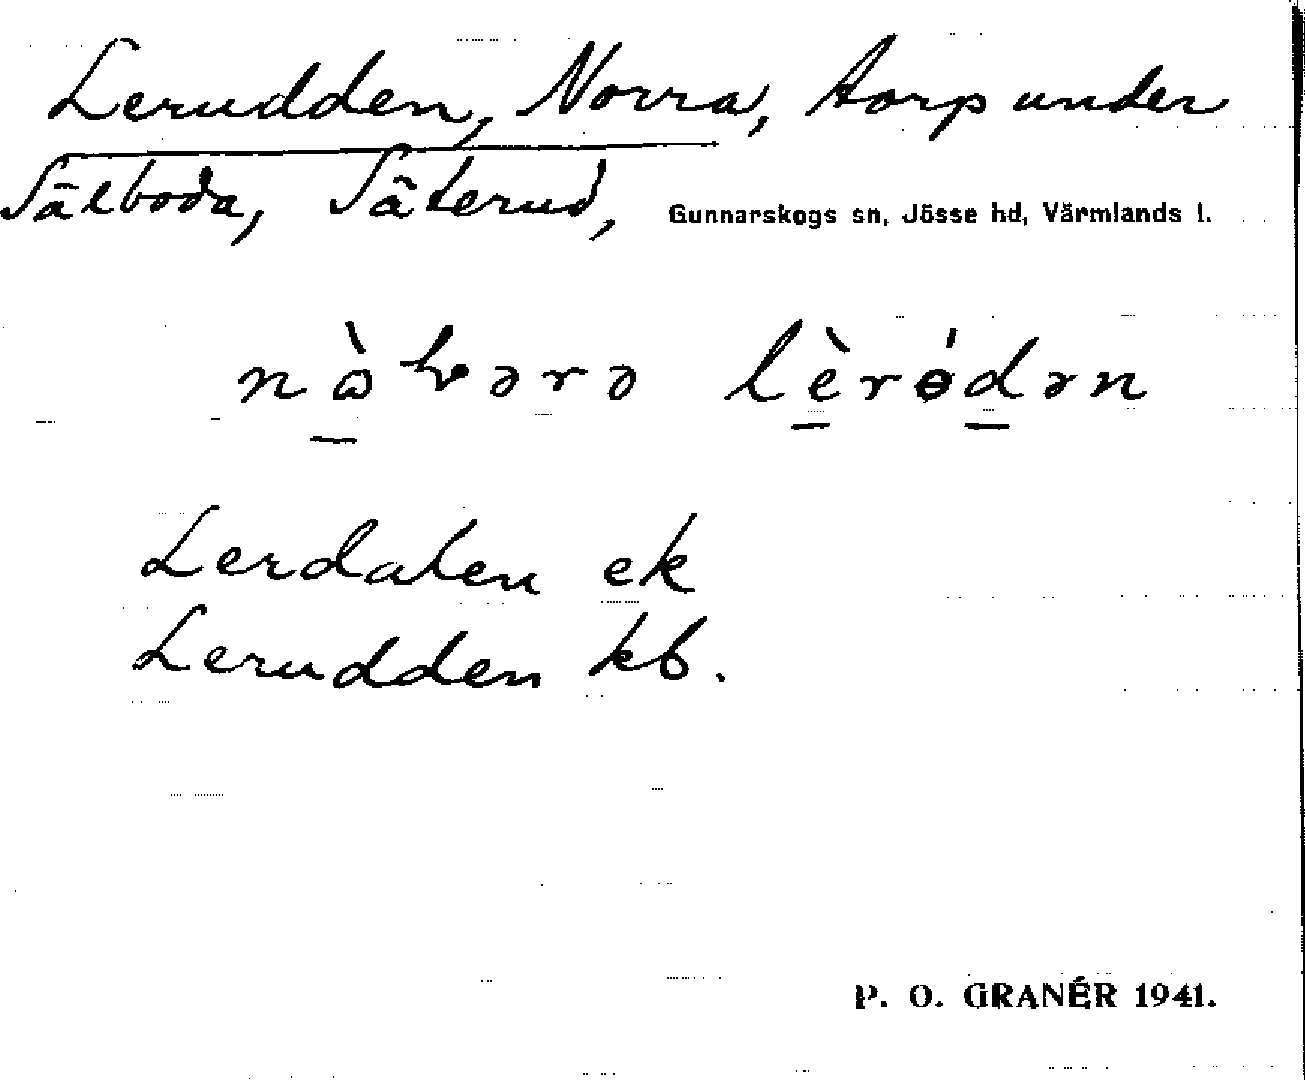 Lerudden, Norra, torp under
Sälboda, Säterud, Gunnarskogs sn, Jösse hd, Värmlands l.
lèrɵ́dən
Lerdalen ek
Lerudden kb.
P. O. GRANÉR 1941.